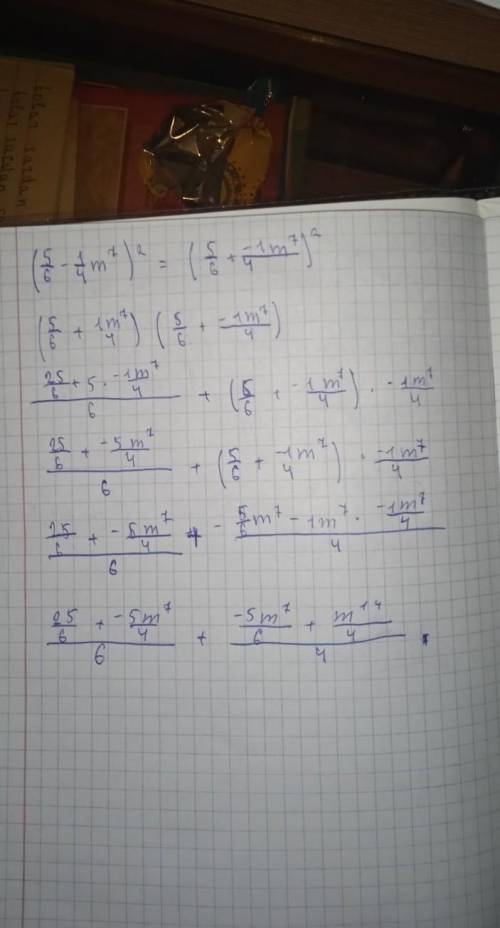 (5/6 - 1/4 m^7)^2 = (5/6 + -1m^7/4)^2
(5/6 + 1m^7/4) (5/6 + -1m^7/4)
(25/6 + 5 · -1m^7/4)/6 + (5/6 + -1m^7/4) · -1m^7/4
(25/6 + -5m^7/4)/6 + (5/6 + -1m^7/4) · -1m^7/4
(25/6 + -5m^7/4)/6 + (-5/6 m^7 - 1m^7 · -1m^7/4)/4
(25/6 + -5m^7/4)/6 + (-5m^7/6 + m^14/4)/4 .